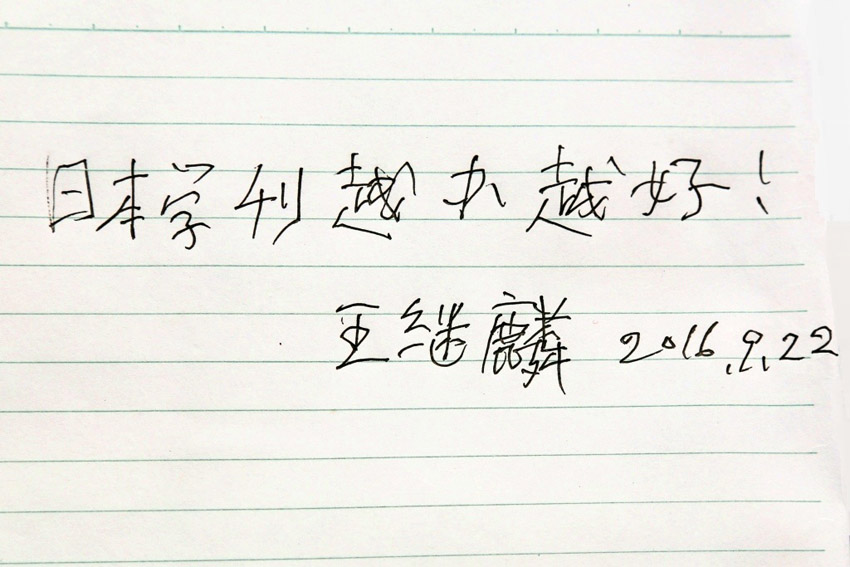 日本学刊越办越好！
王继麟 2016.9.22